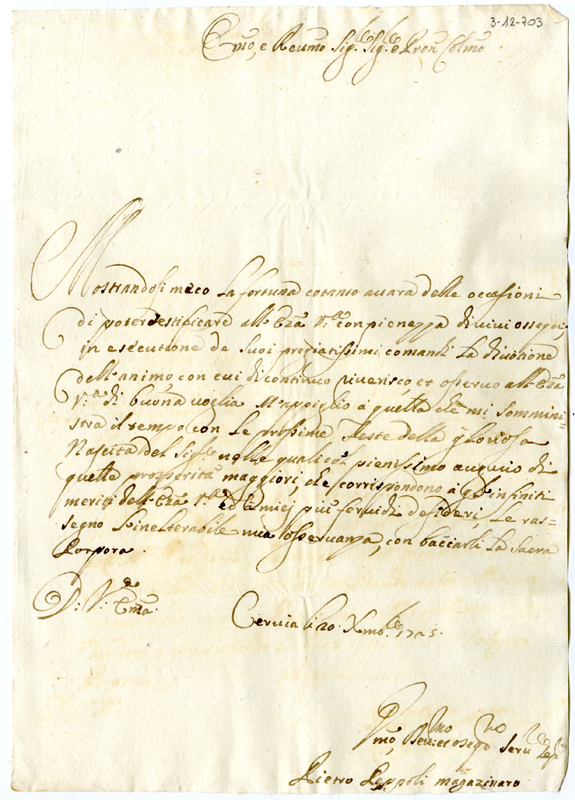 3-12-703
Emo, e Reumo Sig.r Sig.r e Pron Colmo
Mostrandosi meco la fortuna cotanto auara delle occasioni
di poter testificare all' Eza V.a con pienezza di uiui ossequi,
in essecutione de suoi pregiatissimi comandi la diuotione
dell' animo con cui di continuo riuerisco, et osseruo all' Eza
V.a di buona uoglia m'appiglio à quella che mi sommini=
stra il tempo con le prossime feste della gloriosa
Nascita del Sig.re nelle quali con pienissimo augurio di
quelle prosperità maggiori, che corrispondono à gl' infiniti
meriti dell' Eza V.a ed à miei piu feruidi desideri, le ras=
segno l' inalterabile mia osseruanza, con bacciarli la Sacra
Porpora.
D: V: Ema.
Ceruia li 20. Xmb.re 1725.
Vmo, Deuot. Seru.re
Pietro Peppoli magazinaro